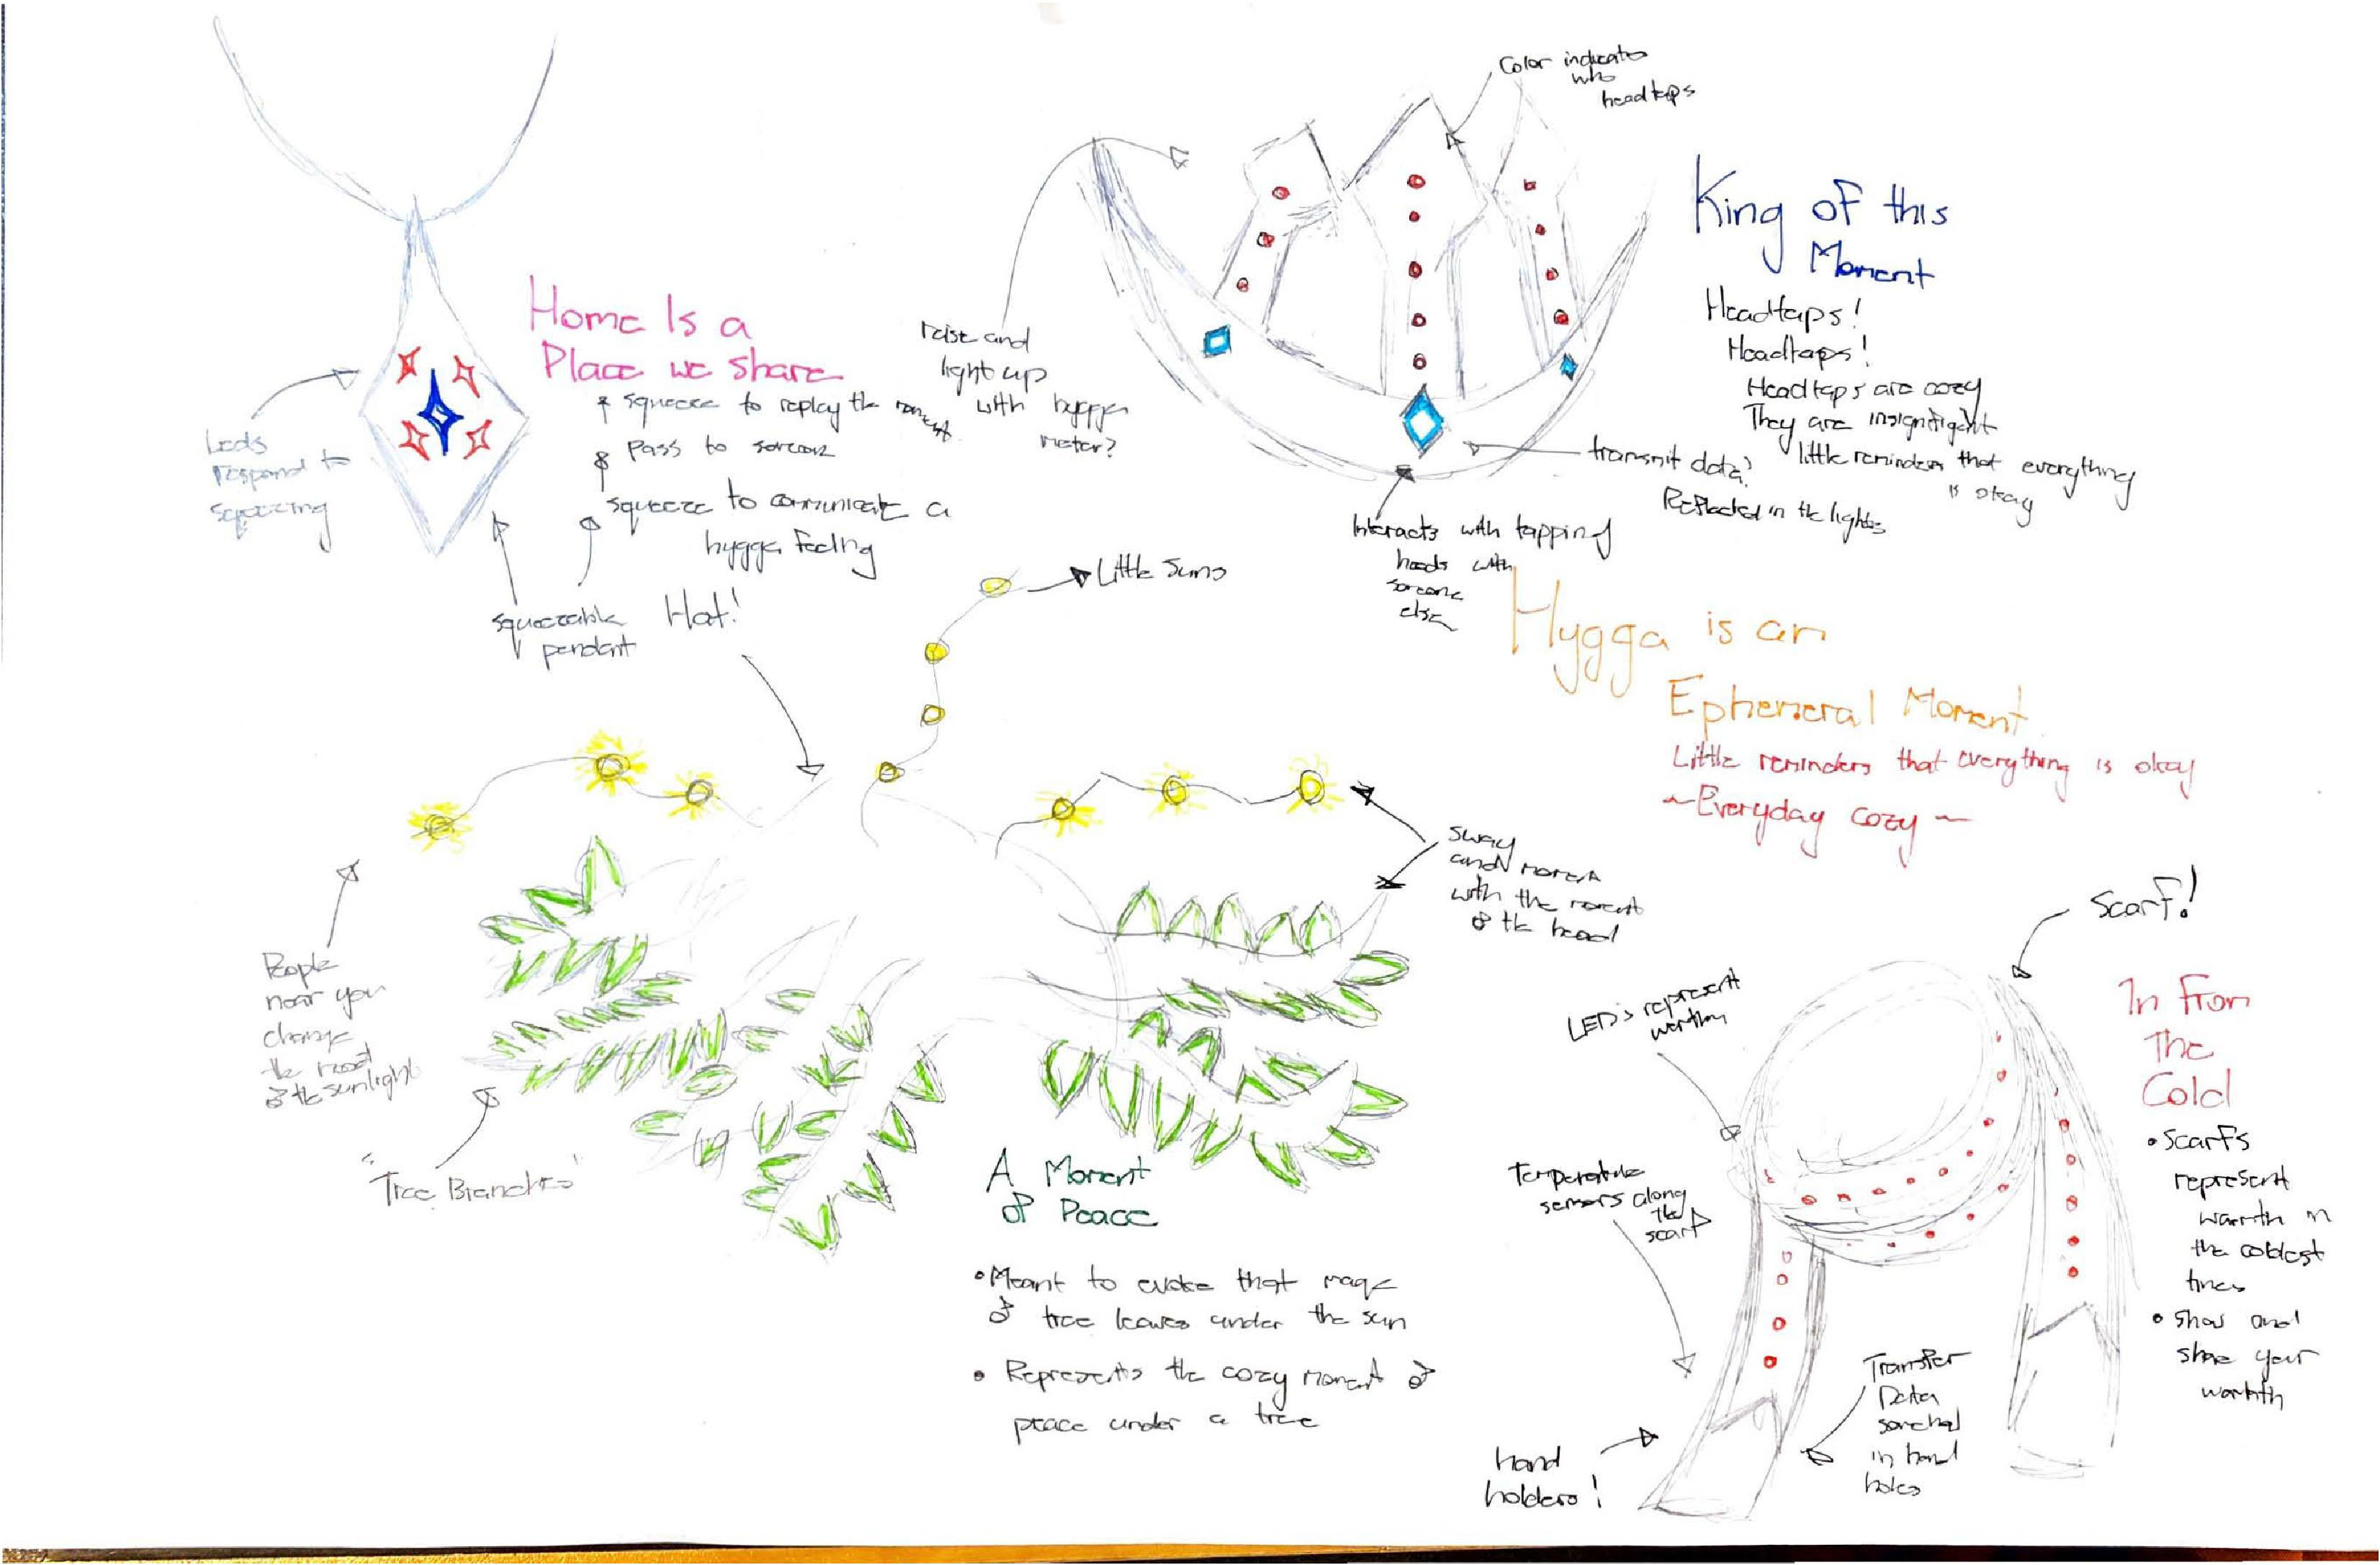 Home Is a
Place we share
squeeze to replay the moment
Pass to someone
squeeze to communicate a
hygge feeling
Leds
respond to
squeezing
squeezable
pendant
Color indicates
who
headtaps
raise and
light up
with hygge
meter?
King of this
Moment
Headtaps!
Headtaps!
Headtaps are cozy
They are insignifigant
little reminders that everything
is okay
transmit data?
Reflected in the lights
Interacts with tapping
heads with
someone
else
Hygga is an
Ephemeral Moment
Little reminders that everything is okay
~Everyday cozy~
Hat!
Little Suns
sway
and
with the
of the head
People
near you
change
the mood
of the sunlight
"Tree Branches"
A Moment
of Peace
• Meant to evoke that magic
of tree leaves under the sun
• Represents the cozy moment of
peace under a tree
Scarf!
In From
The
Cold
• Scarfs
represent
warmth in
the coldest
times
• Show and
share your
warmth
LED's represent
warmth
Temperature
sensors along
the
scarf
Transfer
Data
somehow
in hand
holes
hand
holders!